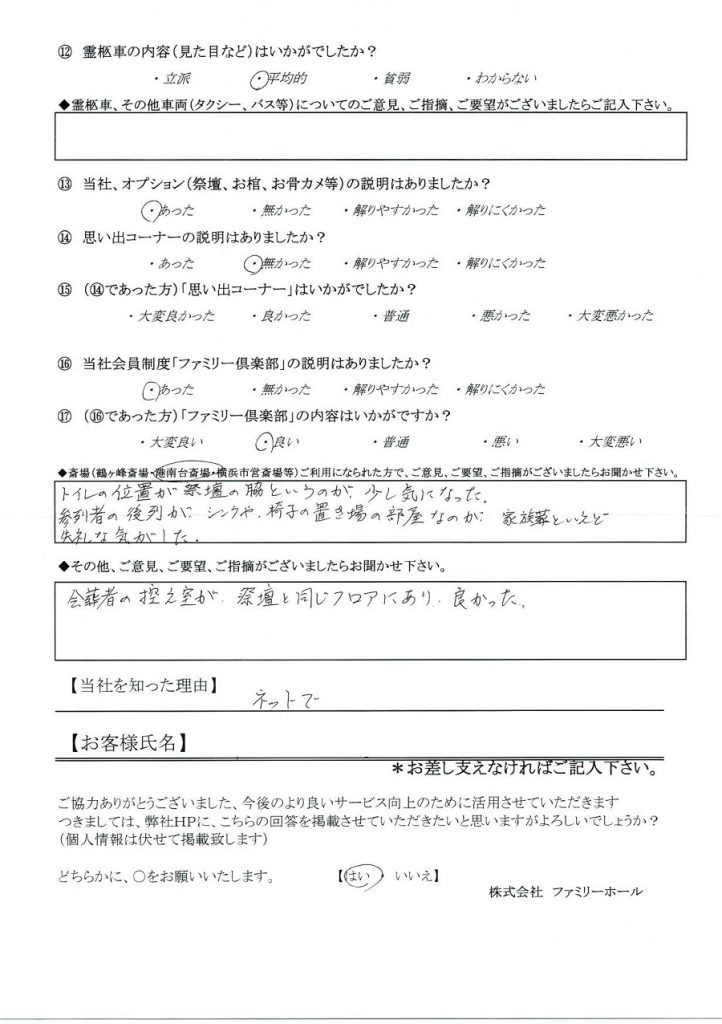 ⑫ 霊柩車の内容(見た目など)はいかがでしたか?
・立派 ・平均的 ・貧弱 ・わからない
◆霊柩車、その他車両(タクシー、バス等)についてのご意見、ご指摘、ご要望がございましたらご記入下さい。
⑬ 当社、オプション(祭壇、お棺、お骨カメ等)の説明はありましたか?
・あった ・無かった ・解りやすかった ・解りにくかった
⑭ 思い出コーナーの説明はありましたか?
・あった ・無かった ・解りやすかった ・解りにくかった
⑮ (⑭であった方)「思い出コーナー」はいかがでしたか?
・大変良かった ・良かった ・普通 ・悪かった ・大変悪かった
⑯ 当社会員制度「ファミリー倶楽部」の説明はありましたか?
・あった ・無かった ・解りやすかった ・解りにくかった
⑰ (⑯であった方)「ファミリー倶楽部」の内容はいかがですか?
・大変良い ・良い ・普通 ・悪い ・大変悪い
◆斎場(鶴ヶ峰斎場・港南台斎場・横浜市営斎場等)ご利用になられた方で、ご意見、ご要望、ご指摘がございましたらお聞かせ下さい。
トイレの位置が祭壇の脇というのが、少し気になった。
参列者の後列が、シンクや、椅子の置き場の部屋なのが、家族葬といえど
失礼な気がした。
◆その他、ご意見、ご要望、ご指摘がございましたらお聞かせ下さい。
会葬者の控え室が、祭壇と同じフロアにあり、良かった。
【当社を知った理由】
ネットで
【お客様氏名】
*お差し支えなければご記入下さい。
ご協力ありがとうございました、今後のより良いサービス向上のために活用させていただきます
つきましては、弊社HPに、こちらの回答を掲載させていただきたいと思いますがよろしいでしょうか?
(個人情報は伏せて掲載致します)
どちらかに、○をお願いいたします。 【はい ・ いいえ】
株式会社 ファミリーホール